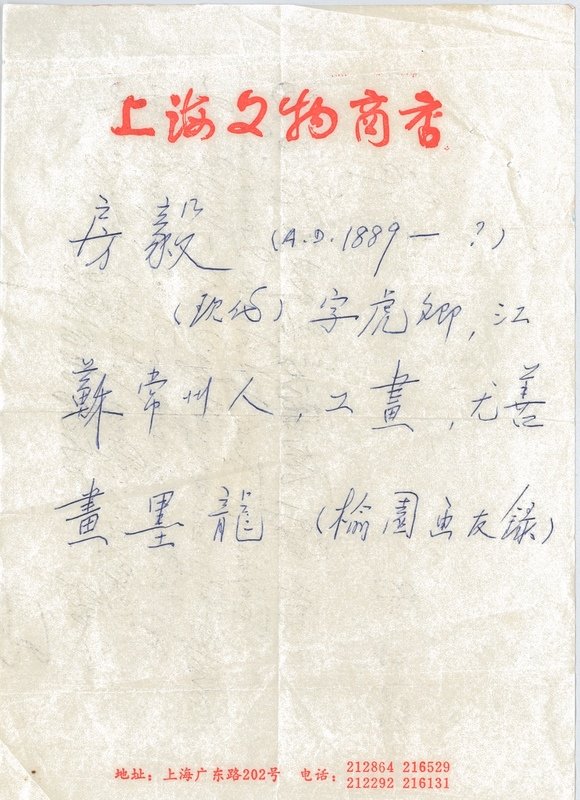 上海文物商店
房毅 (A.D.1889— ?)
(现代) 字虎卿, 江
蘇常州人, 工畫, 尤善
畫墨龍 (榆園画友錄)
地址: 上海广东路202号 电话: 212864 216529
212292 216131